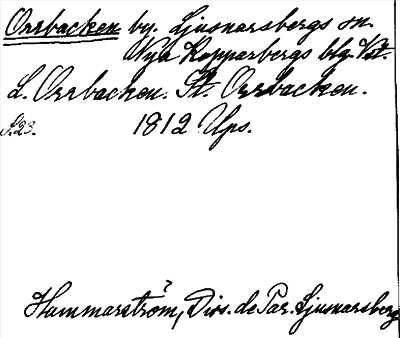 Orrbacken by. Ljusnarsbergs sn.
Nya Kopparbergs blg. Vst.
L. Orrbacken. St. Orrbacken.
S.23. 1812 Ups.
?
Hammarström, Diss. de Par. Ljusnarsberg